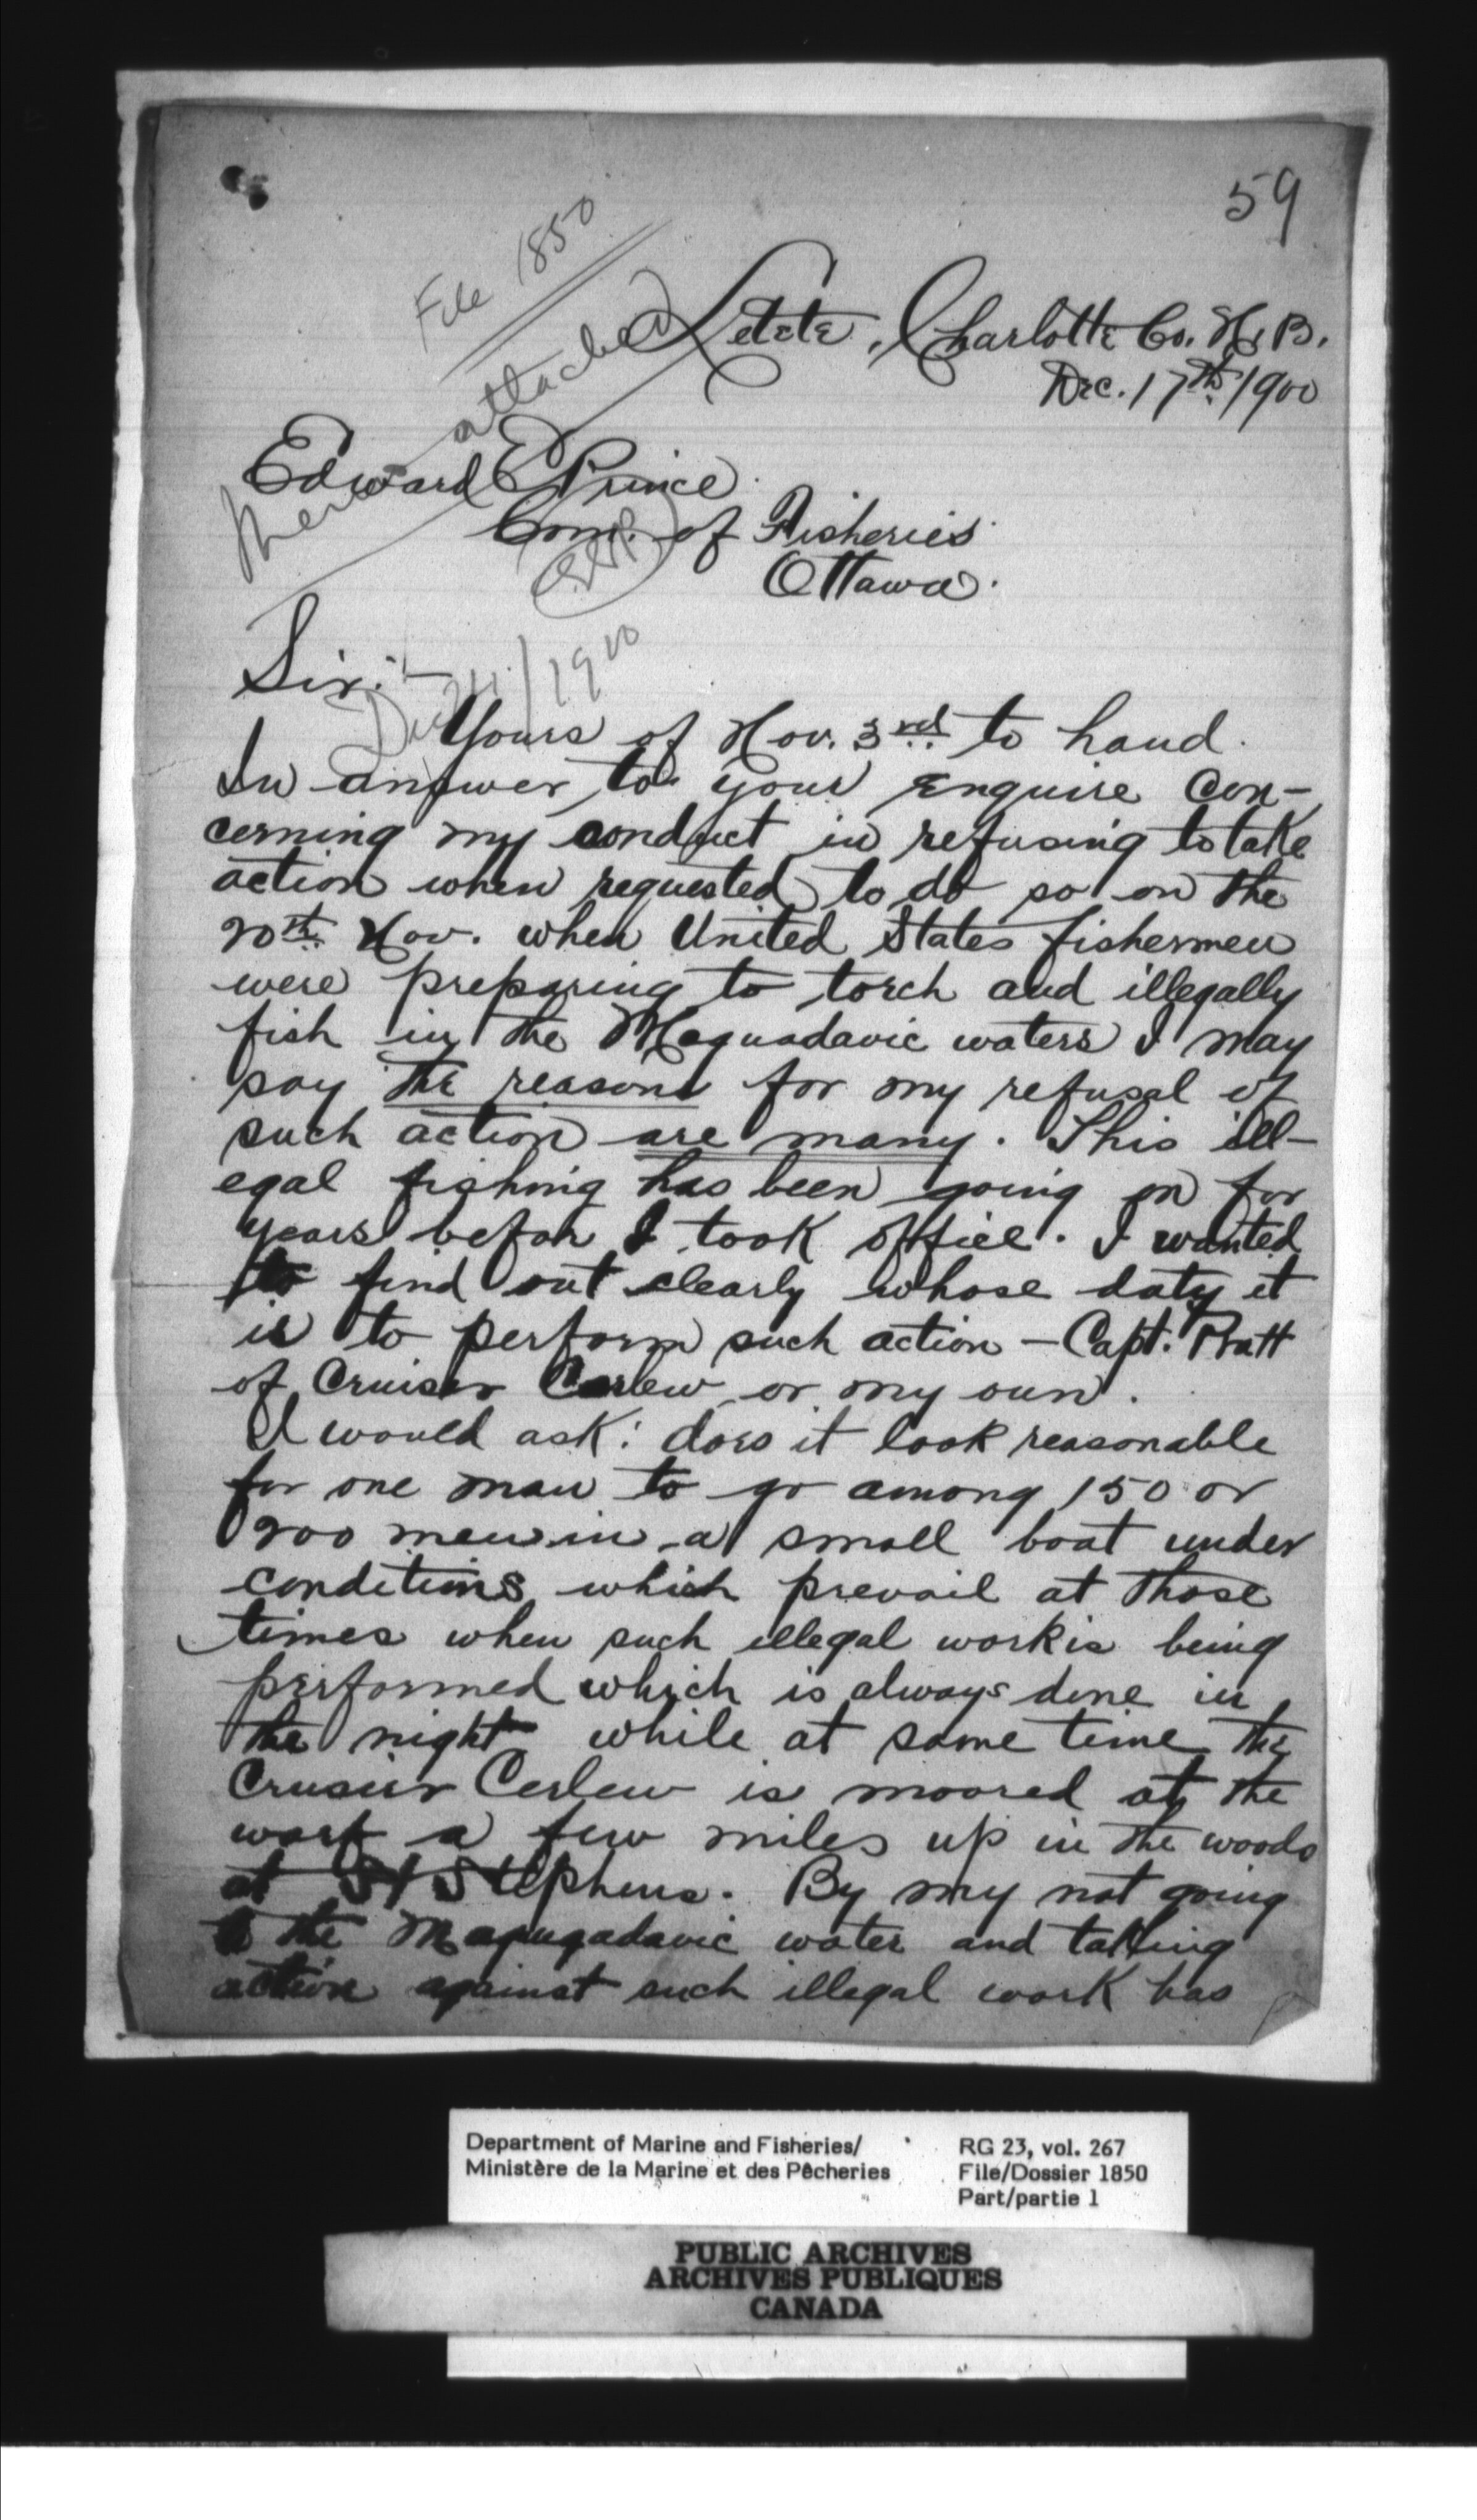 59
File 1850
attached
Letete, Charlotte Co. N. B.
Dec. 17th 1900
Edward E Prince
Com. of Fisheries
Ottawa.
Sir:-
1900
Yours of Nov. 3rd to hand.
In answer to your enquire con-
cerning my conduct in refusing to take
action when requested to do so on the
20th Nov. when United States fishermen
were preparing to torch and illegally
fish in the Maguadavic waters I may
say the reasons for my refusal of
such action are many. This ill-
egal fishing has been going on for
years befor I took office. I wanted
to find out clearly whose duty it
is to perform such action - Capt. Pratt
of Cruiser Curlew or my own.
I would ask: does it look reasonable
for one man to go among 150 or
200 men in a small boat under
conditions which prevail at those
times when such illegal work is being
performed which is always done in
the night while at same time the
Crusier Cerlew is moored at the
warf a few miles up in the woods
at St Stephens. By my not going
to the Magugadavic water and taking
action against such illegal work has
Department of Marine and Fisheries/
Ministère de la Marine et des Pêcheries
RG 23, vol. 267
File/Dossier 1850
Part/partie 1
PUBLIC ARCHIVES
ARCHIVES PUBLIQUES
CANADA